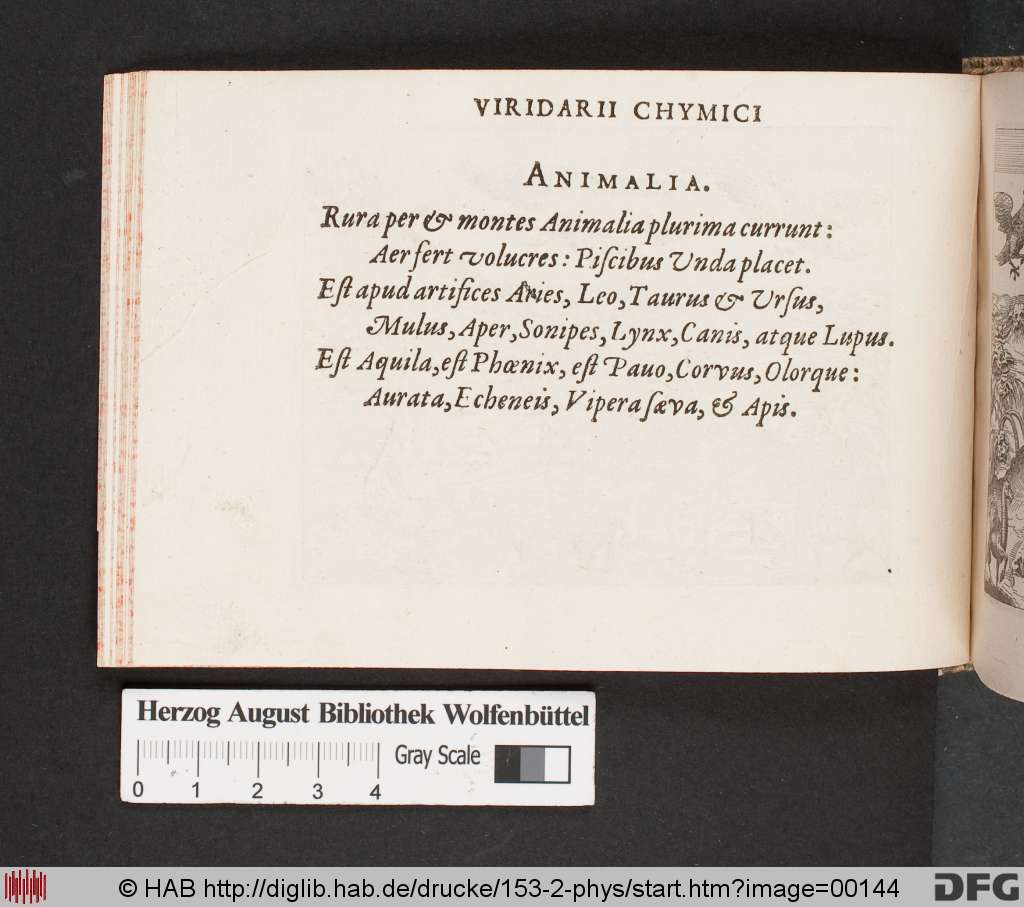 VIRIDARII CHYMICI
ANIMALIA.
Rura per & montes Animalia plurima currunt:
Aer fert volucres: Piſcibus Unda placet.
Eſt apud artifices Aries, Leo, Taurus & Urſus,
Mulus, Aper, Sonipes, Lynx, Canis, atque Lupus.
Eſt Aquila, eſt Phœnix, eſt Pauo, Corvus, Olorque:
Aurata, Echeneis, Vipera ſæva, & Apis.
Herzog August Bibliothek Wolfenbüttel
Gray Scale
0 1 2 3 4
© HAB http://diglib.hab.de/drucke/153-2-phys/start.htm?image=00144
DFG